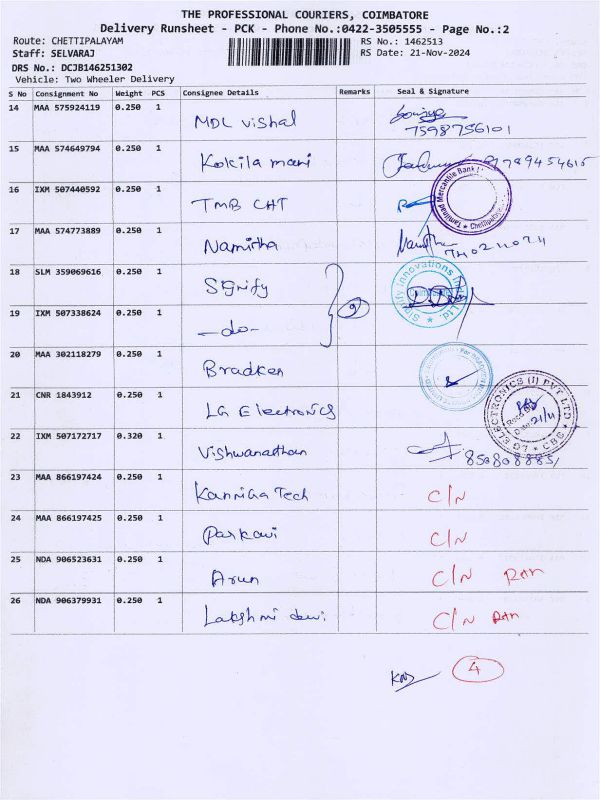 THE PROFESSIONAL COURIERS, COIMBATORE
Delivery Runsheet - PCK - Phone No.:0422-3505555 - Page No.:2
Route: CHETTIPALAYAM RS No.: 1462513
Staff: SELVARAJ RS Date: 21-Nov-2024
DRS No.: DCJB146251302
Vehicle: Two Wheeler Delivery
S No Consignment No Weight PCS Consignee Details Remarks Seal & Signature
14 MAA 575924119 0.250 1 MDL Vishal
7598756101
15 MAA 574649794 0.250 1 Kokila mani
16 IXM 507440592 0.250 1 TMB CHT
Tamilnad Mercantile Bank
Chettipalayam
17 MAA 574773889 0.250 1 Namitha
18 SLM 359069616 0.250 1 Signify
Signify Innovations India Ltd.
19 IXM 507338624 0.250 1 -do- 2
20 MAA 302118279 0.250 1 Bradken
21 CNR 1843912 0.250 1 LG Electronics
LG ELECTRONICS (I) PVT LTD
21/11
22 IXM 507172717 0.320 1 Vishwanathan
23 MAA 866197424 0.250 1 Kanniga Tech C/N
24 MAA 866197425 0.250 1 Parkavi C/N
25 NDA 906523631 0.250 1 Arun C/N
26 NDA 906379931 0.250 1 Lakshmi devi. C/N
4